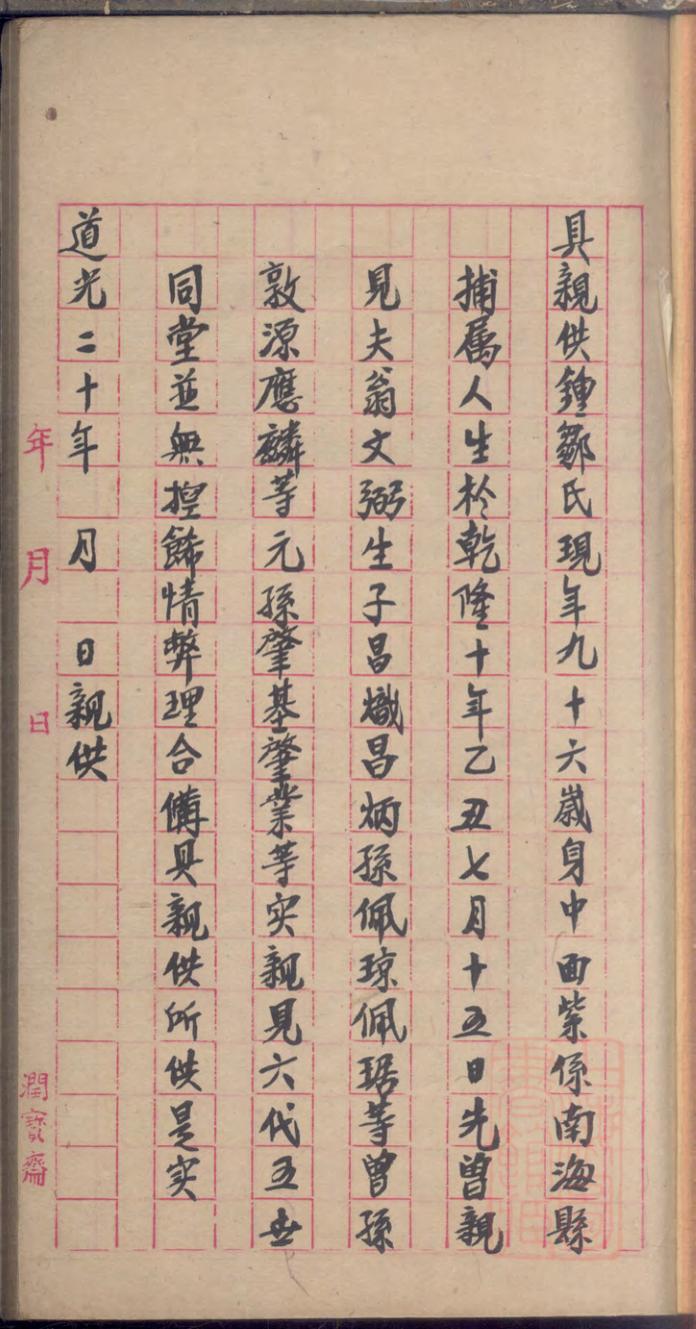 具親供鍾鄒氏現年九十六歲身中面紫係南海縣
捕属人生於乾隆十年乙丑七月十五日先曾親
見夫翁文弼生子昌熾昌炳孫佩琼佩琚等曾孫
敦源應麟等元孫肇基肇業等实親見六代五世
同堂並無捏餙情弊理合備具親供所供是实
道光二十年 月 日親供
年 月 日
潤寶齋